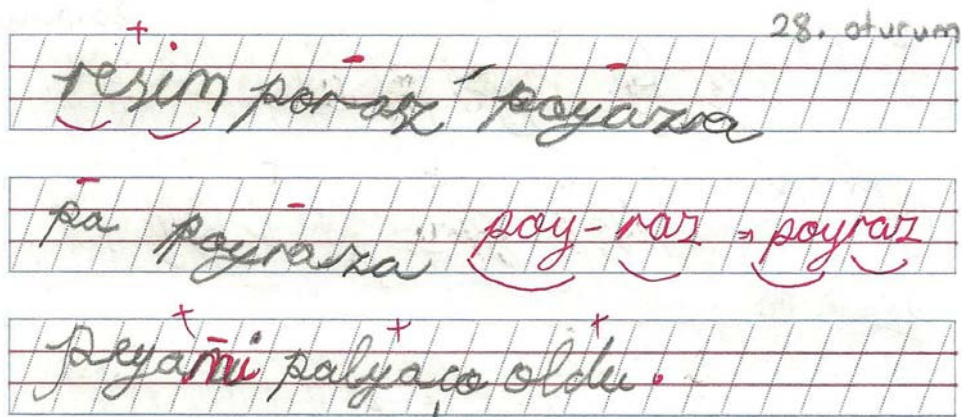 28. oturum
resim poraz poyaza
pa poyraza poy-raz = poyraz
Peyami palyaço oldu.